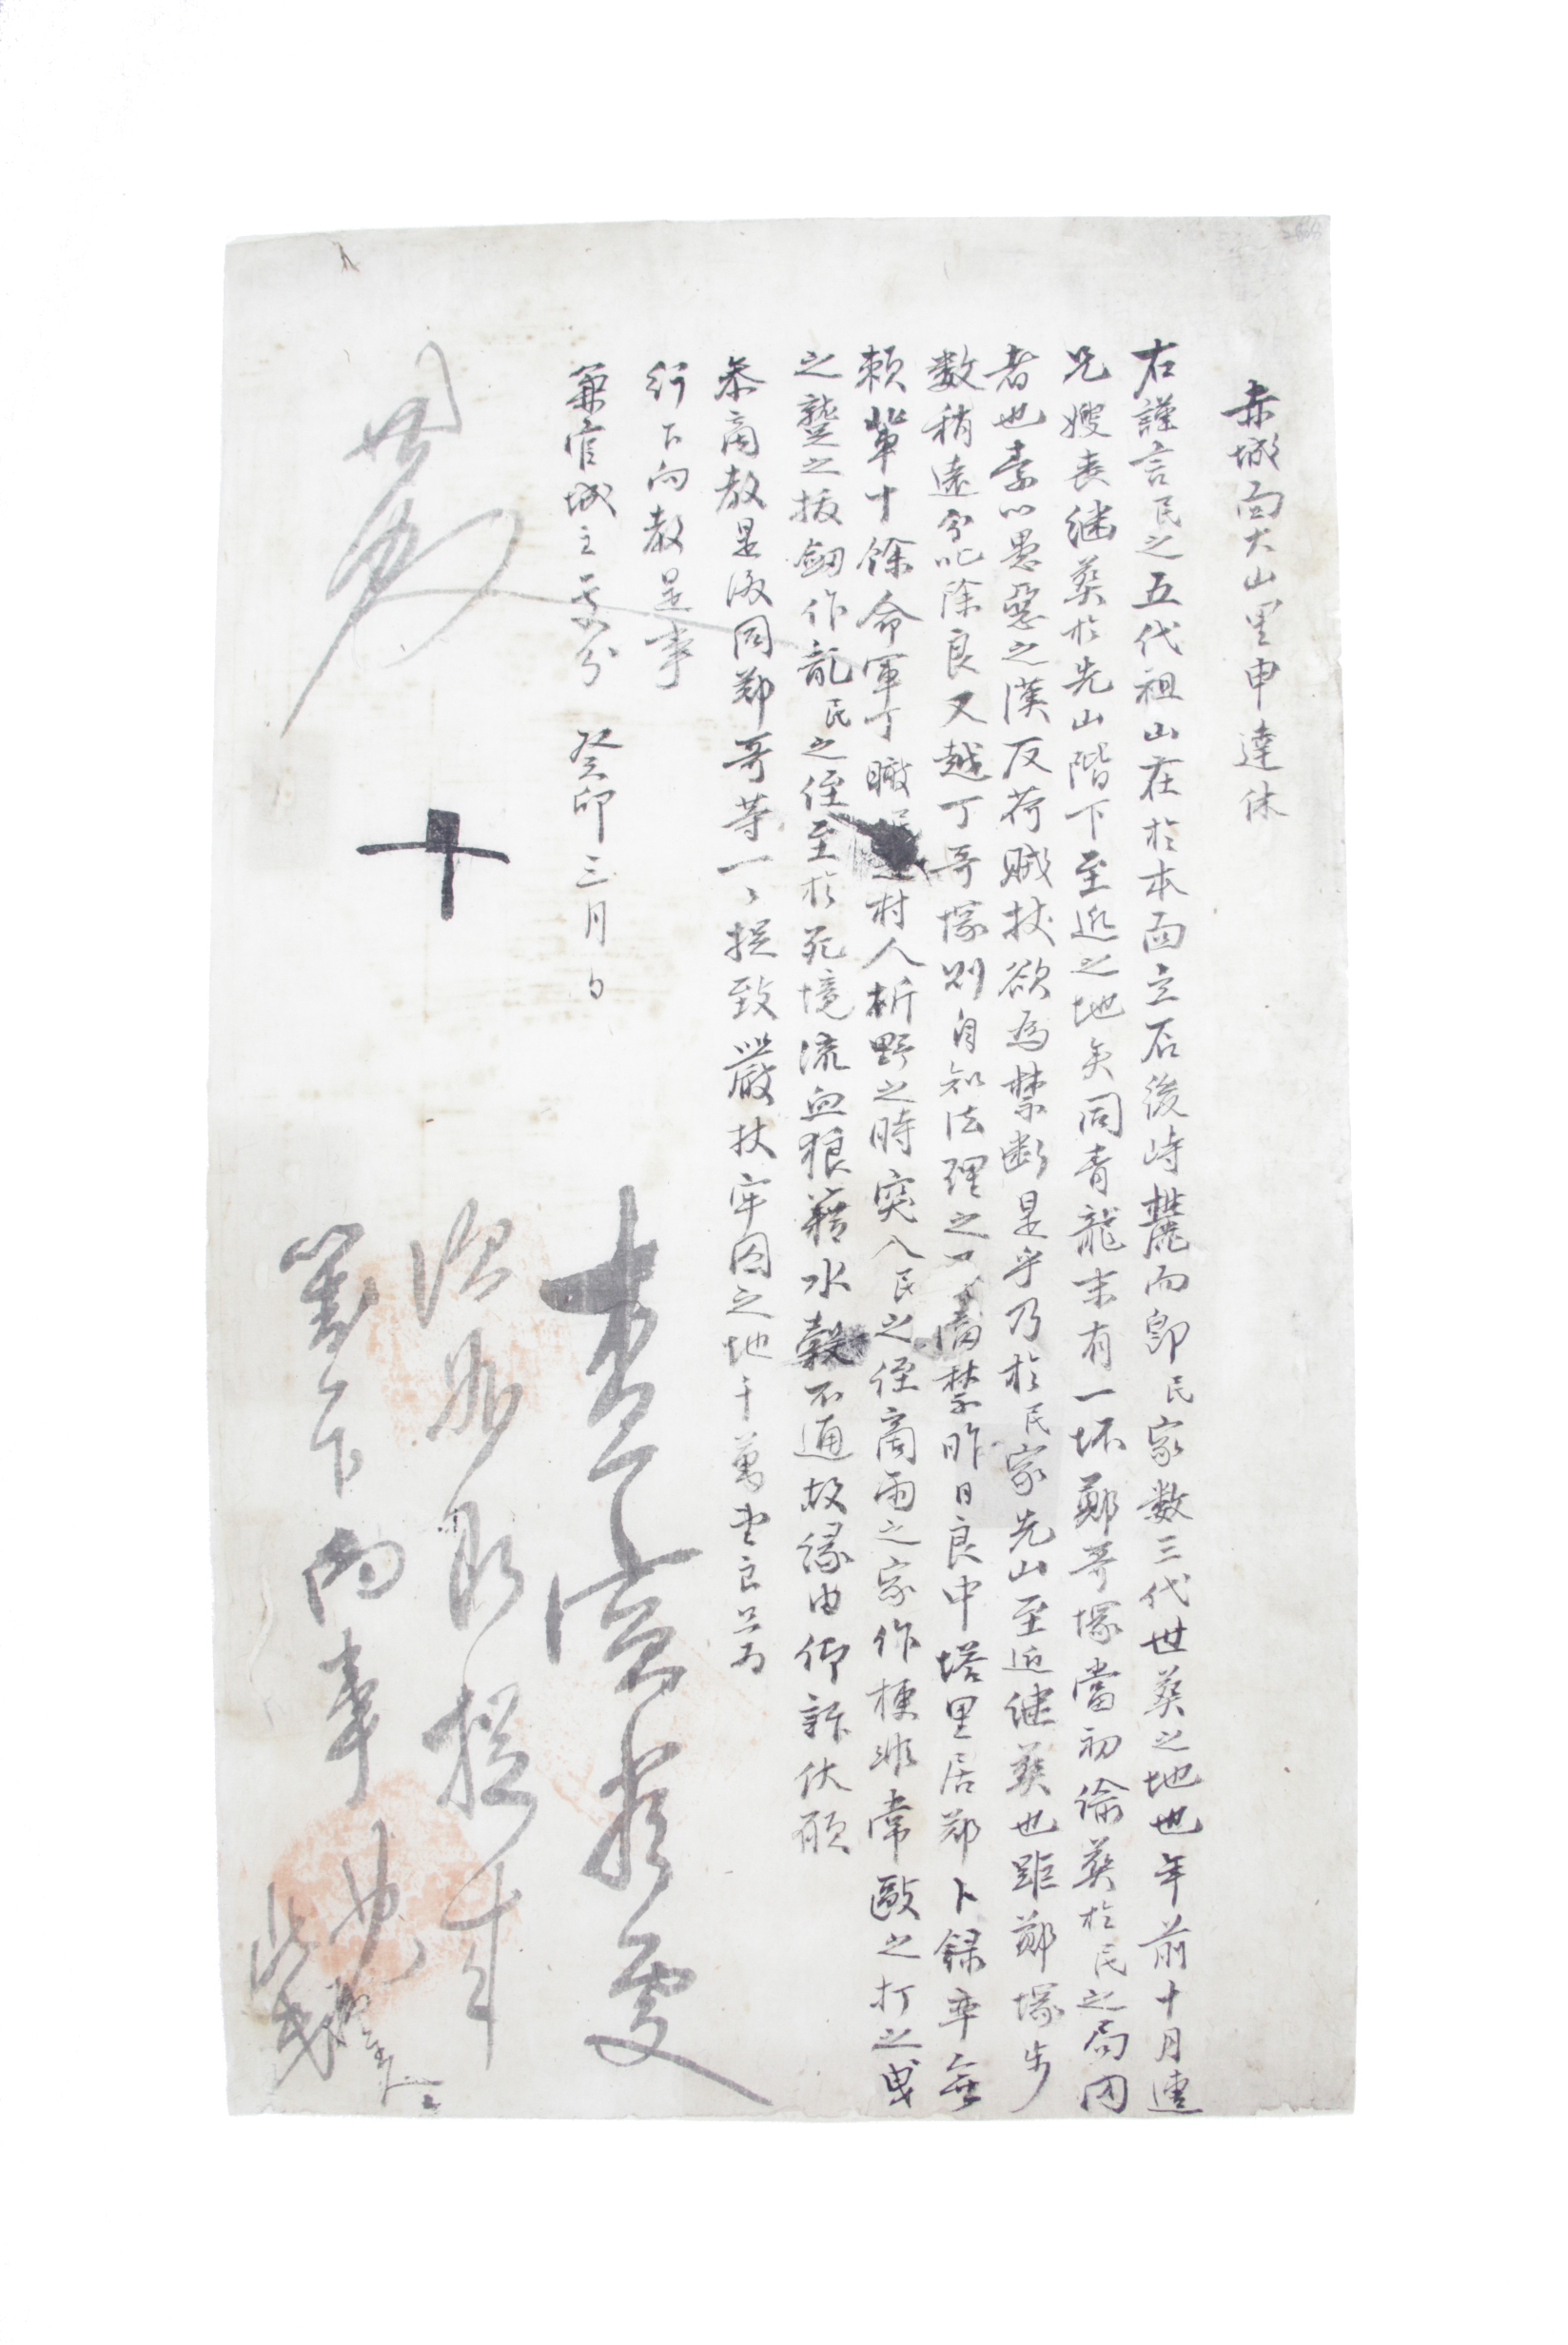 赤城面大山里申達休
右謹言民之五代祖山在於本面立石後峙麓而卽民家数三代世葬之地也年前十月連
兄嫂丧繼葬於先山階下至近之地矣同青龍末有一坏鄭哥塚當初偷葬於民之局內
者也素以愚惡之漢反荷賊杖欲爲禁斷是乎乃於民家先山至近繼葬也距鄭塚步
数稍遠分叱除良又越丁哥塚則自知法理之不當禁昨日良中塔里居鄭卜錄率無
賴輩十餘命軍丁瞰民 村人析野之時突入民之侄商雨之家作梗非常毆之打之曳
之蹵之拔劒作亂民之侄至於死境流血狼藉水穀不通故緣由仰訴伏願
叅商敎是後同鄭哥等一〻捉致嚴杖牢囚之地千萬望良只爲
行下向敎是事
兼官城主 處分 癸卯三月日
查實嚴處
次 卽 捉來
 向事